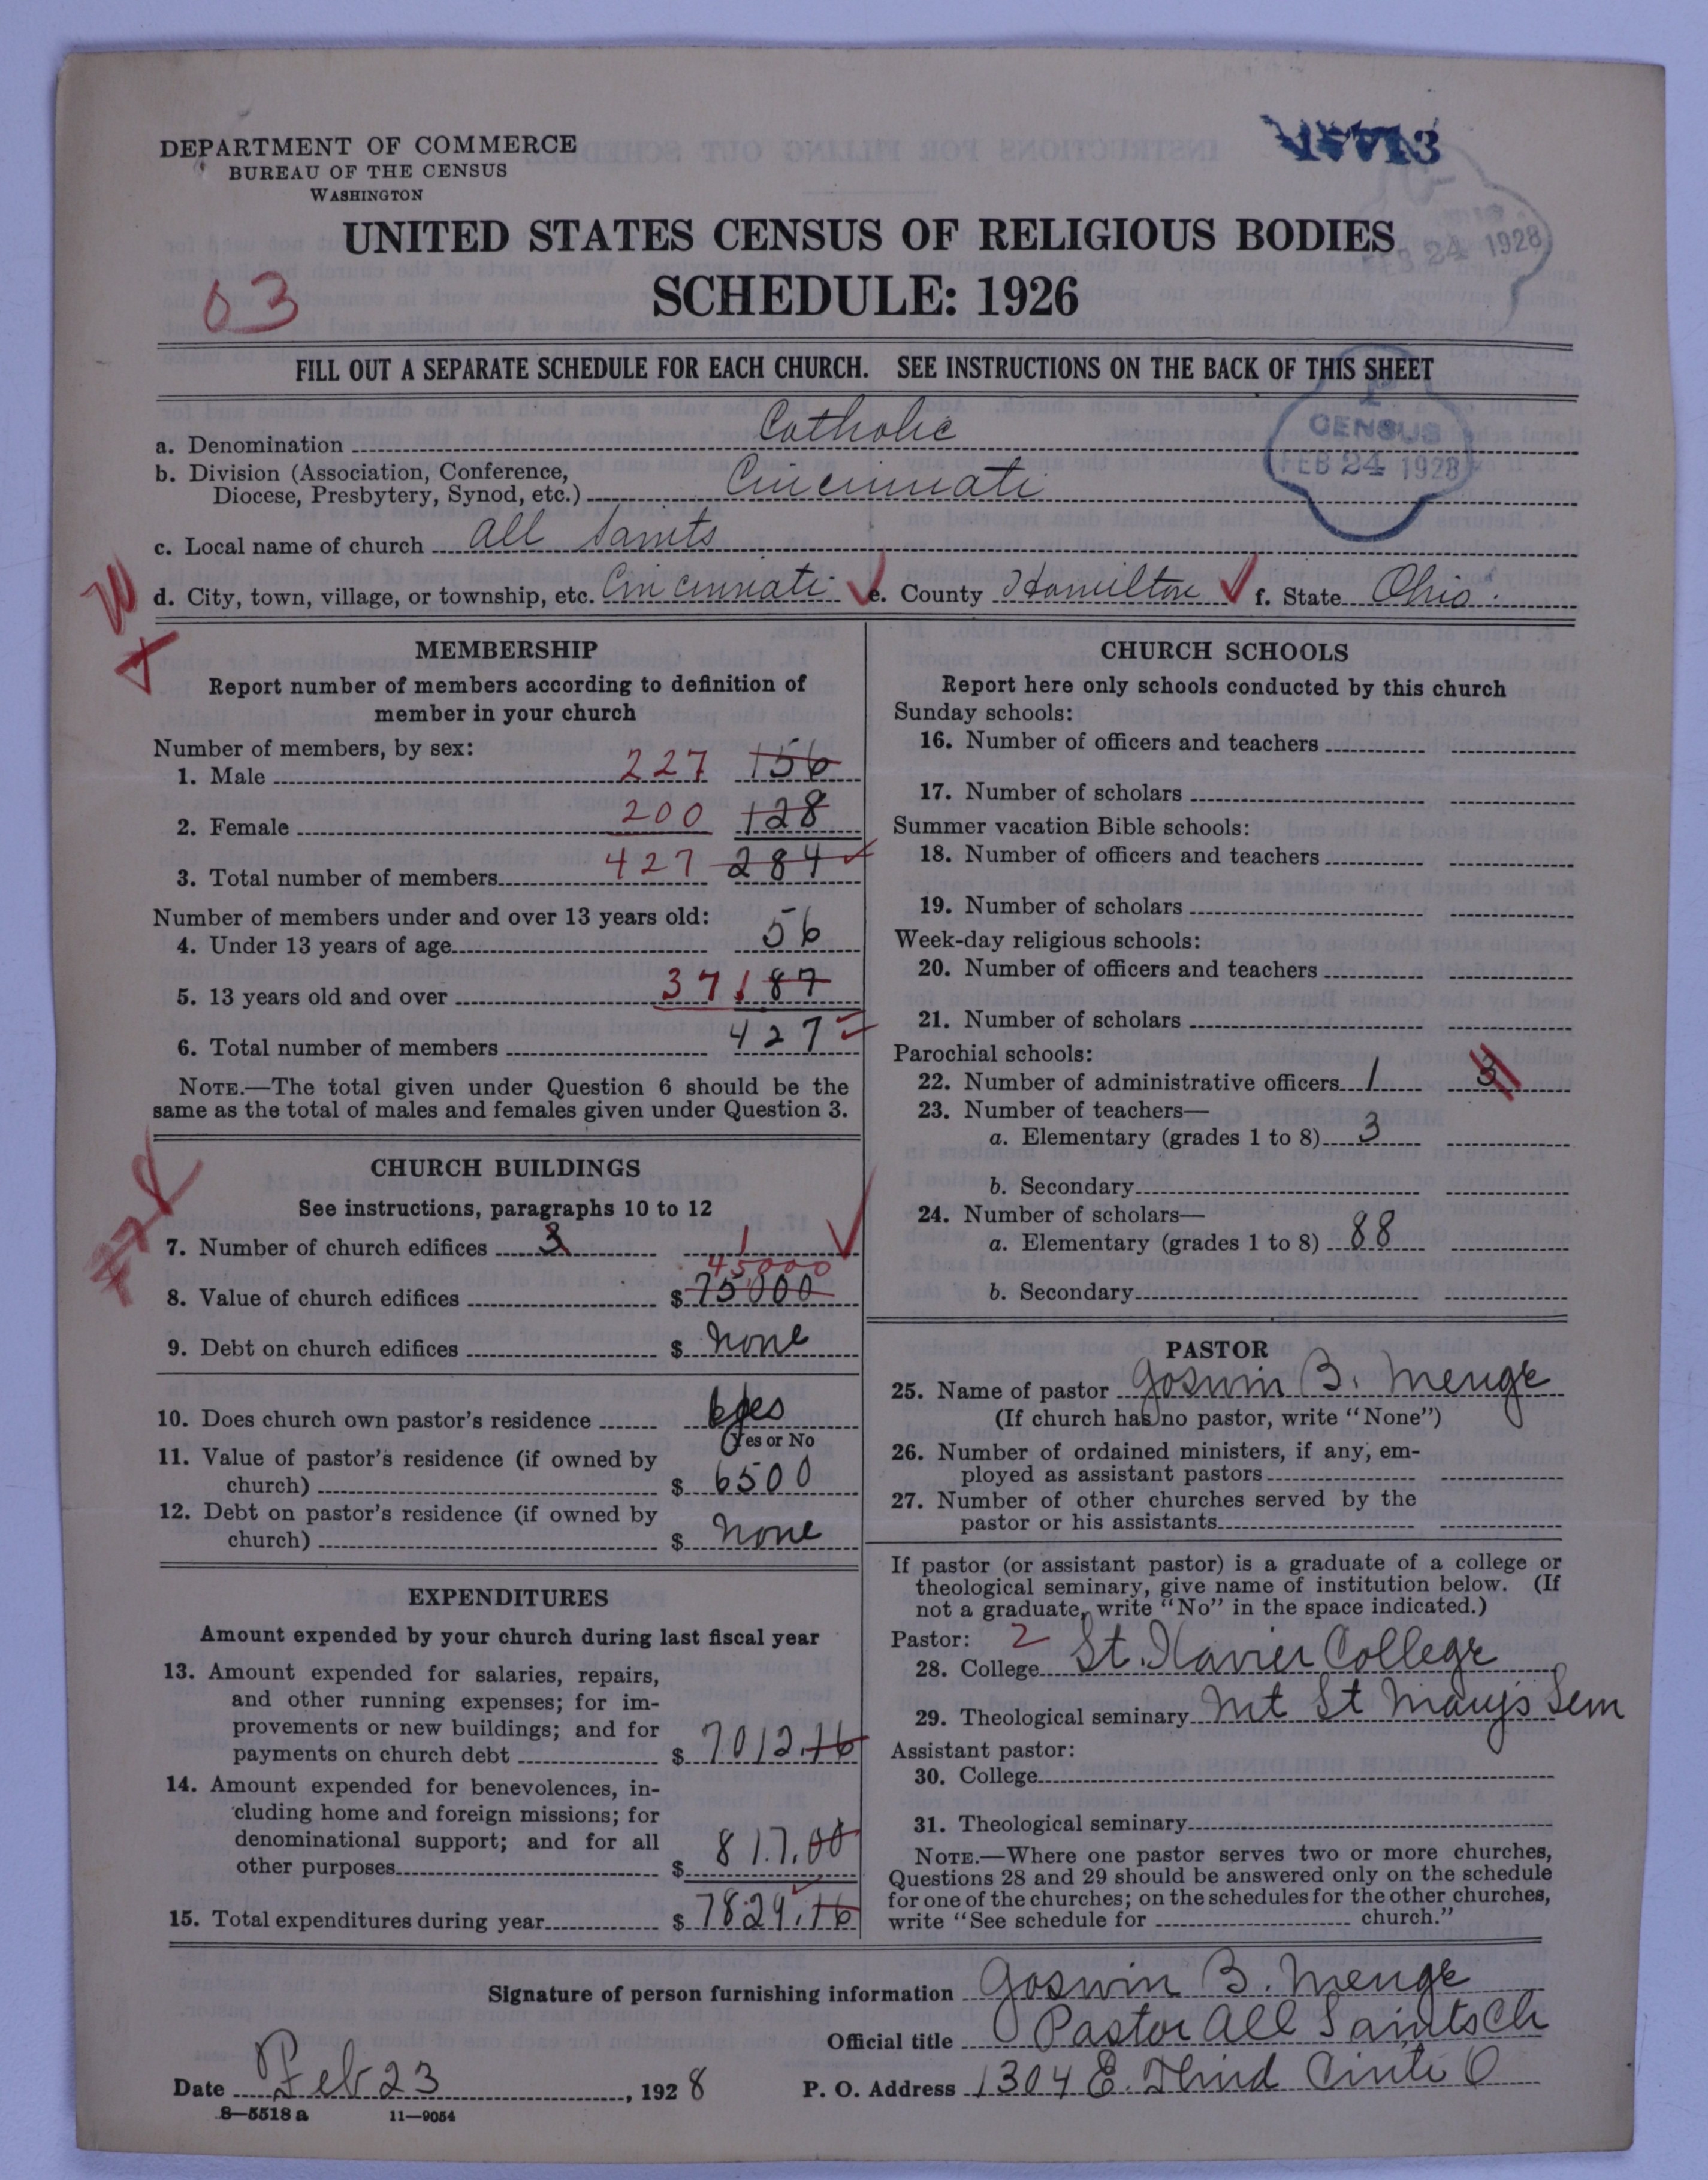 DEPARTMENT OF COMMERCE
BUREAU OF THE CENSUS
WASHINGTON
UNITED STATES CENSUS OF RELIGIOUS BODIES
SCHEDULE: 1926
03
FEB 24 1928
FILL OUT A SEPARATE SCHEDULE FOR EACH CHURCH. SEE INSTRUCTIONS ON THE BACK OF THIS SHEET
CENSUS
FEB 24 1928
a. Denomination Catholic
b. Division (Association, Conference,
Diocese, Presbytery, Synod, etc.) Cincinnati
c. Local name of church All Saints
d. City, town, village, or township, etc. Cincinnati e. County Hamilton f. State Ohio.
MEMBERSHIP
Report number of members according to definition of
member in your church
Number of members, by sex:
1. Male 227 156
2. Female 200 128
3. Total number of members 427 284
Number of members under and over 13 years old:
4. Under 13 years of age 56
5. 13 years old and over 371 87
6. Total number of members 427
NOTE.—The total given under Question 6 should be the
same as the total of males and females given under Question 3.
CHURCH BUILDINGS
See instructions, paragraphs 10 to 12
7. Number of church edifices 3 1
45000
8. Value of church edifices $ 75000
9. Debt on church edifices $ none
10. Does church own pastor's residence yes
(Yes or No
11. Value of pastor's residence (if owned by
church) $ 6500
12. Debt on pastor's residence (if owned by
church) $ none
EXPENDITURES
Amount expended by your church during last fiscal year
13. Amount expended for salaries, repairs,
and other running expenses; for im-
provements or new buildings; and for
payments on church debt $ 7012.16
14. Amount expended for benevolences, in-
cluding home and foreign missions; for
denominational support; and for all
other purposes $ 817.00
15. Total expenditures during year $ 7829.16
CHURCH SCHOOLS
Report here only schools conducted by this church
Sunday schools:
16. Number of officers and teachers
17. Number of scholars
Summer vacation Bible schools:
18. Number of officers and teachers
19. Number of scholars
Week-day religious schools:
20. Number of officers and teachers
21. Number of scholars
Parochial schools:
22. Number of administrative officers 1 3
23. Number of teachers—
a. Elementary (grades 1 to 8) 3
b. Secondary
24. Number of scholars—
a. Elementary (grades 1 to 8) 88
b. Secondary
PASTOR
25. Name of pastor Goswin B. Menge
(If church has no pastor, write "None")
26. Number of ordained ministers, if any, em-
ployed as assistant pastors
27. Number of other churches served by the
pastor or his assistants
If pastor (or assistant pastor) is a graduate of a college or
theological seminary, give name of institution below. (If
not a graduate, write "No" in the space indicated.)
Pastor: 2
28. College St. Xavier College
29. Theological seminary Mt St Mary's Sem
Assistant pastor:
30. College
31. Theological seminary
NOTE.—Where one pastor serves two or more churches,
Questions 28 and 29 should be answered only on the schedule
for one of the churches; on the schedules for the other churches,
write "See schedule for church."
Signature of person furnishing information Goswin B. Menge
Official title Pastor All Saints Ch
Date Feb 23, 1928 P. O. Address 1304 E. Third Cinti O
8—5518 a 11—9054